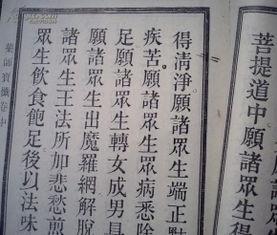 菩提道中願諸眾生得
得清淨願諸眾生端正黠
疾苦願諸眾生眾病悉除
足願諸眾生轉女成男具
願諸眾生出魔羅網解脫
諸眾生王法所加悲愁煎
眾生飲食飽足後以法味
藥師寶懺卷中